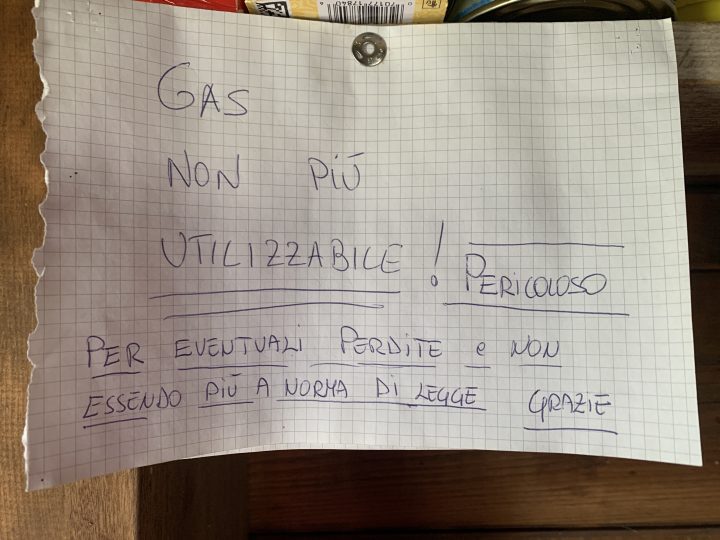 GAS
NON PIÙ
UTILIZZABILE! PERICOLOSO
PER EVENTUALI PERDITE e NON
ESSENDO PIÙ A NORMA DI LEGGE GRAZIE